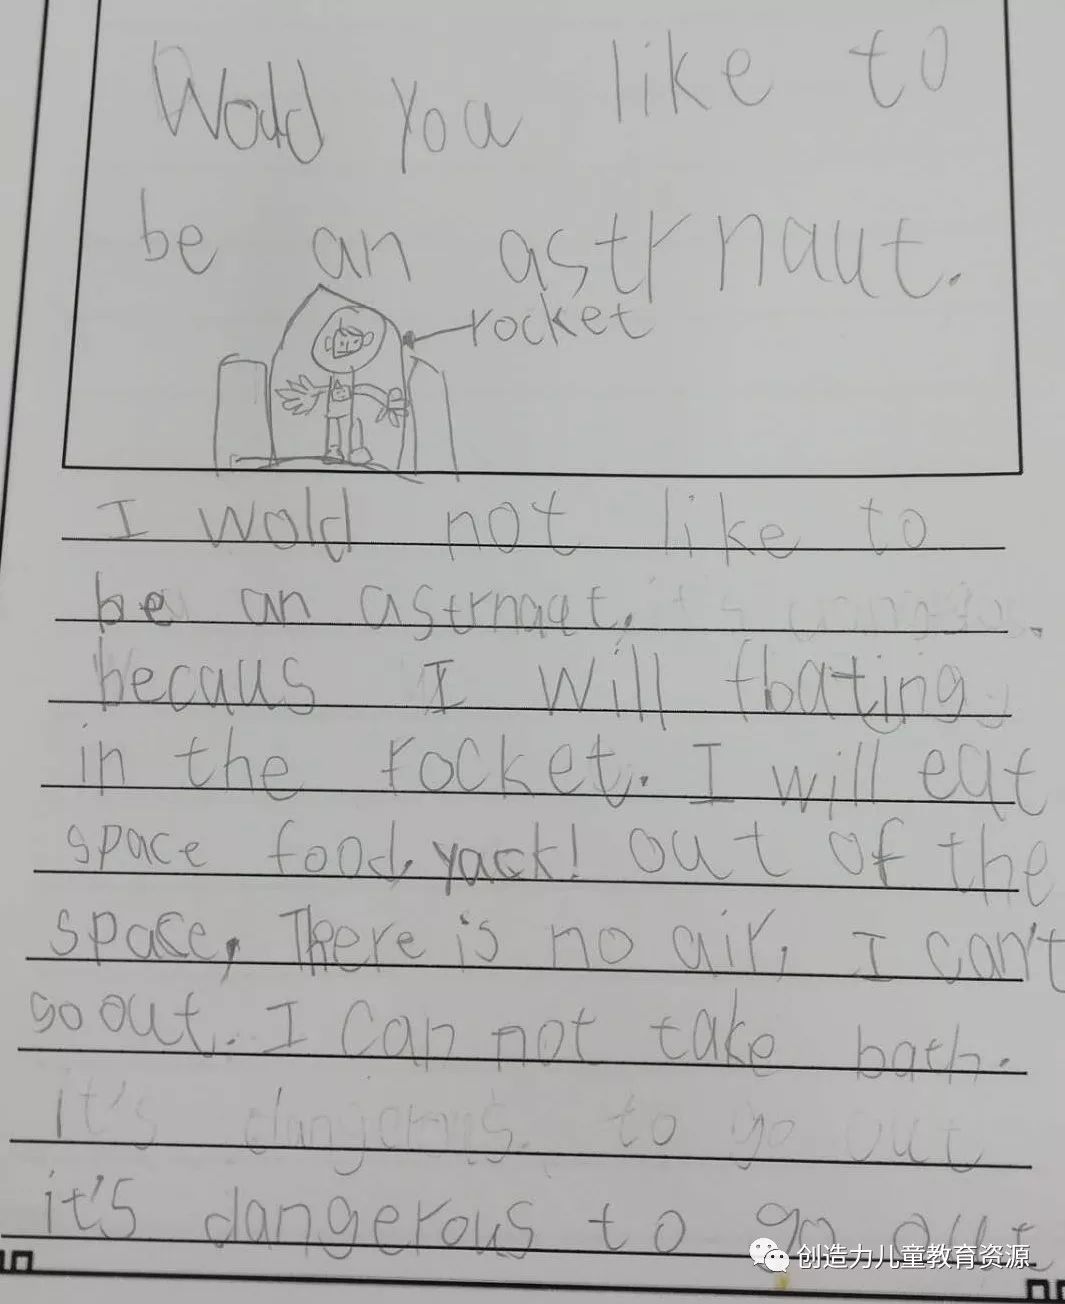 Wold you like to
be an astrnaut.
rocket
I wold not like to
be an astrnaut.
becaus I will floating
in the rocket. I will eat
space food, yack! out of the
space, There is no air, I can't
go out. I can not take bath.
it's dangerous to go out
it's dangerous to go out
创造力儿童教育资源